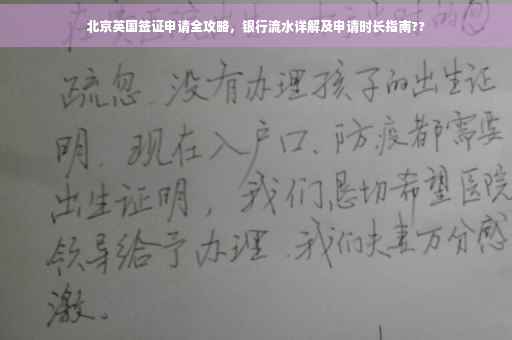 北京英国签证申请全攻略，银行流水详解及申请时长指南??
疏忽、没有办理孩子的出生证
明、现在入户口、防疫都需要
出生证明，我们恳切希望医院
领导给予办理、我们夫妻万分感
激。